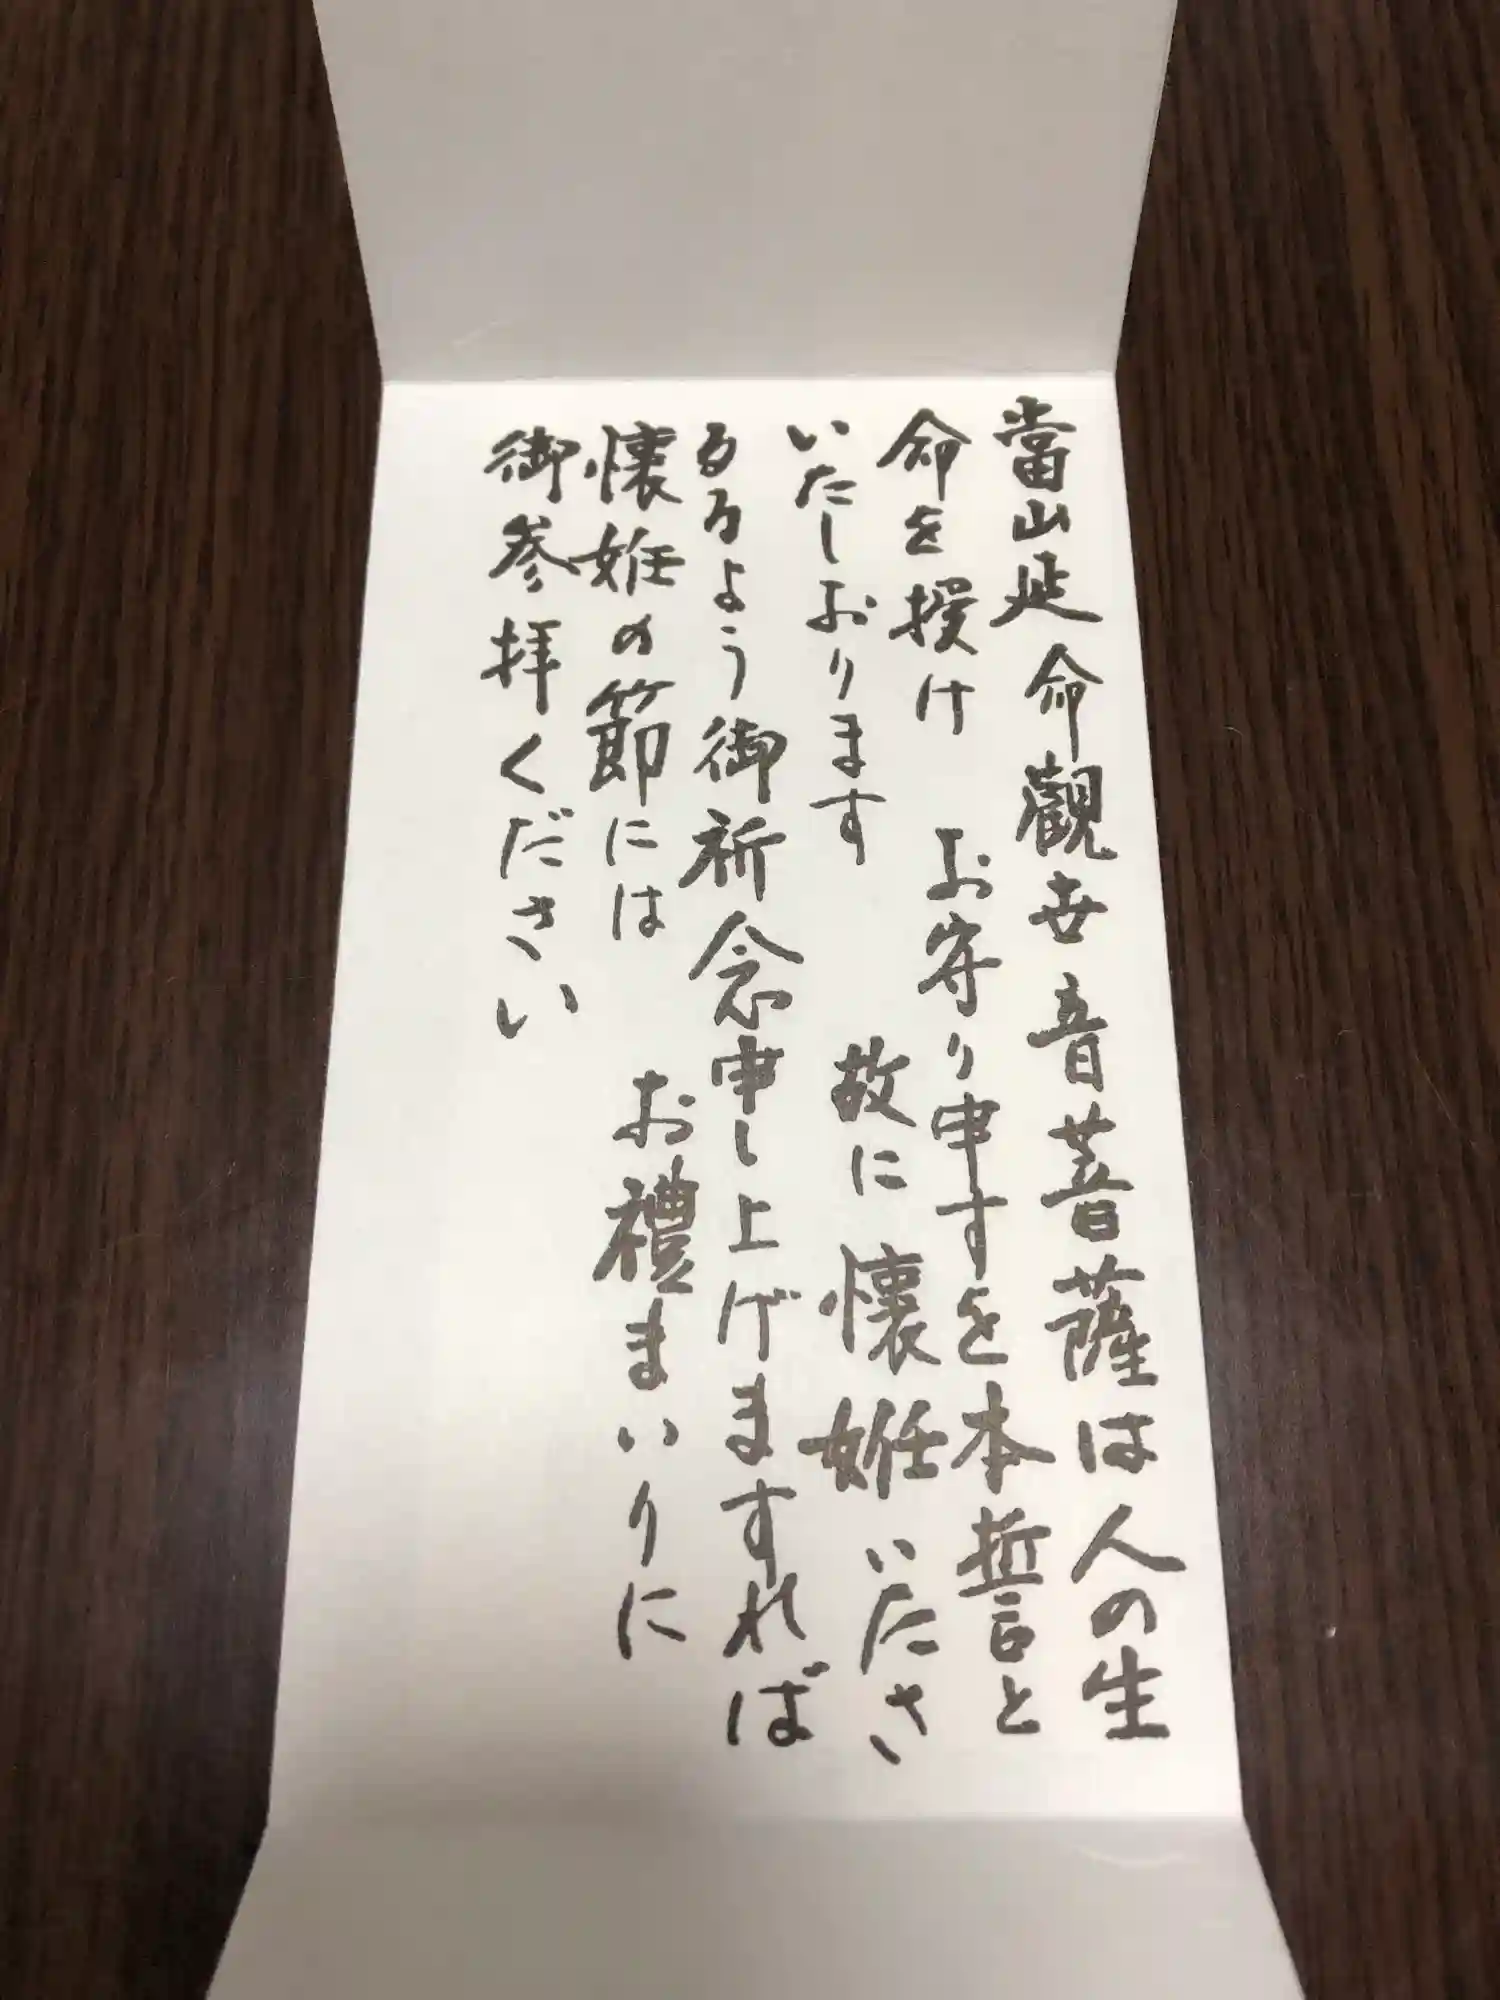 當山延命觀世音菩薩は人の生
命を授け　お守り申すを本誓と
いたしおります　故に懐姙いたさ
るるよう御祈念申し上げますれば
懐姙の節には　お禮まいりに
御参拝ください